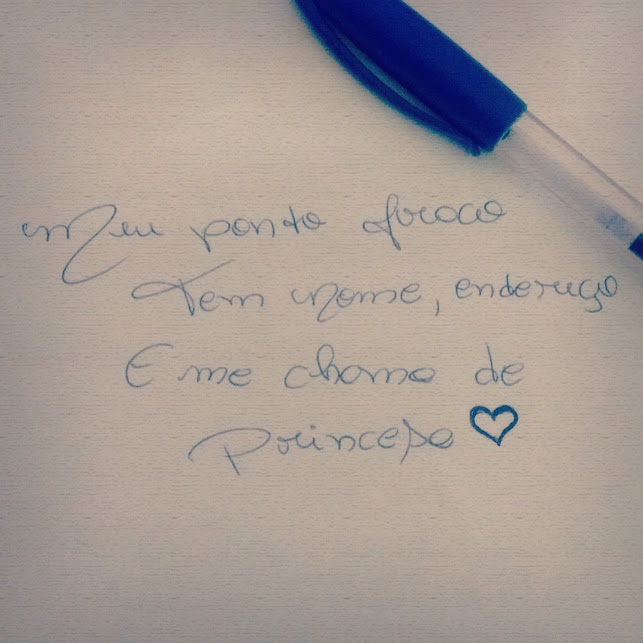 Meu ponto fraco
Tem nome, endereço
E me chama de
Princesa